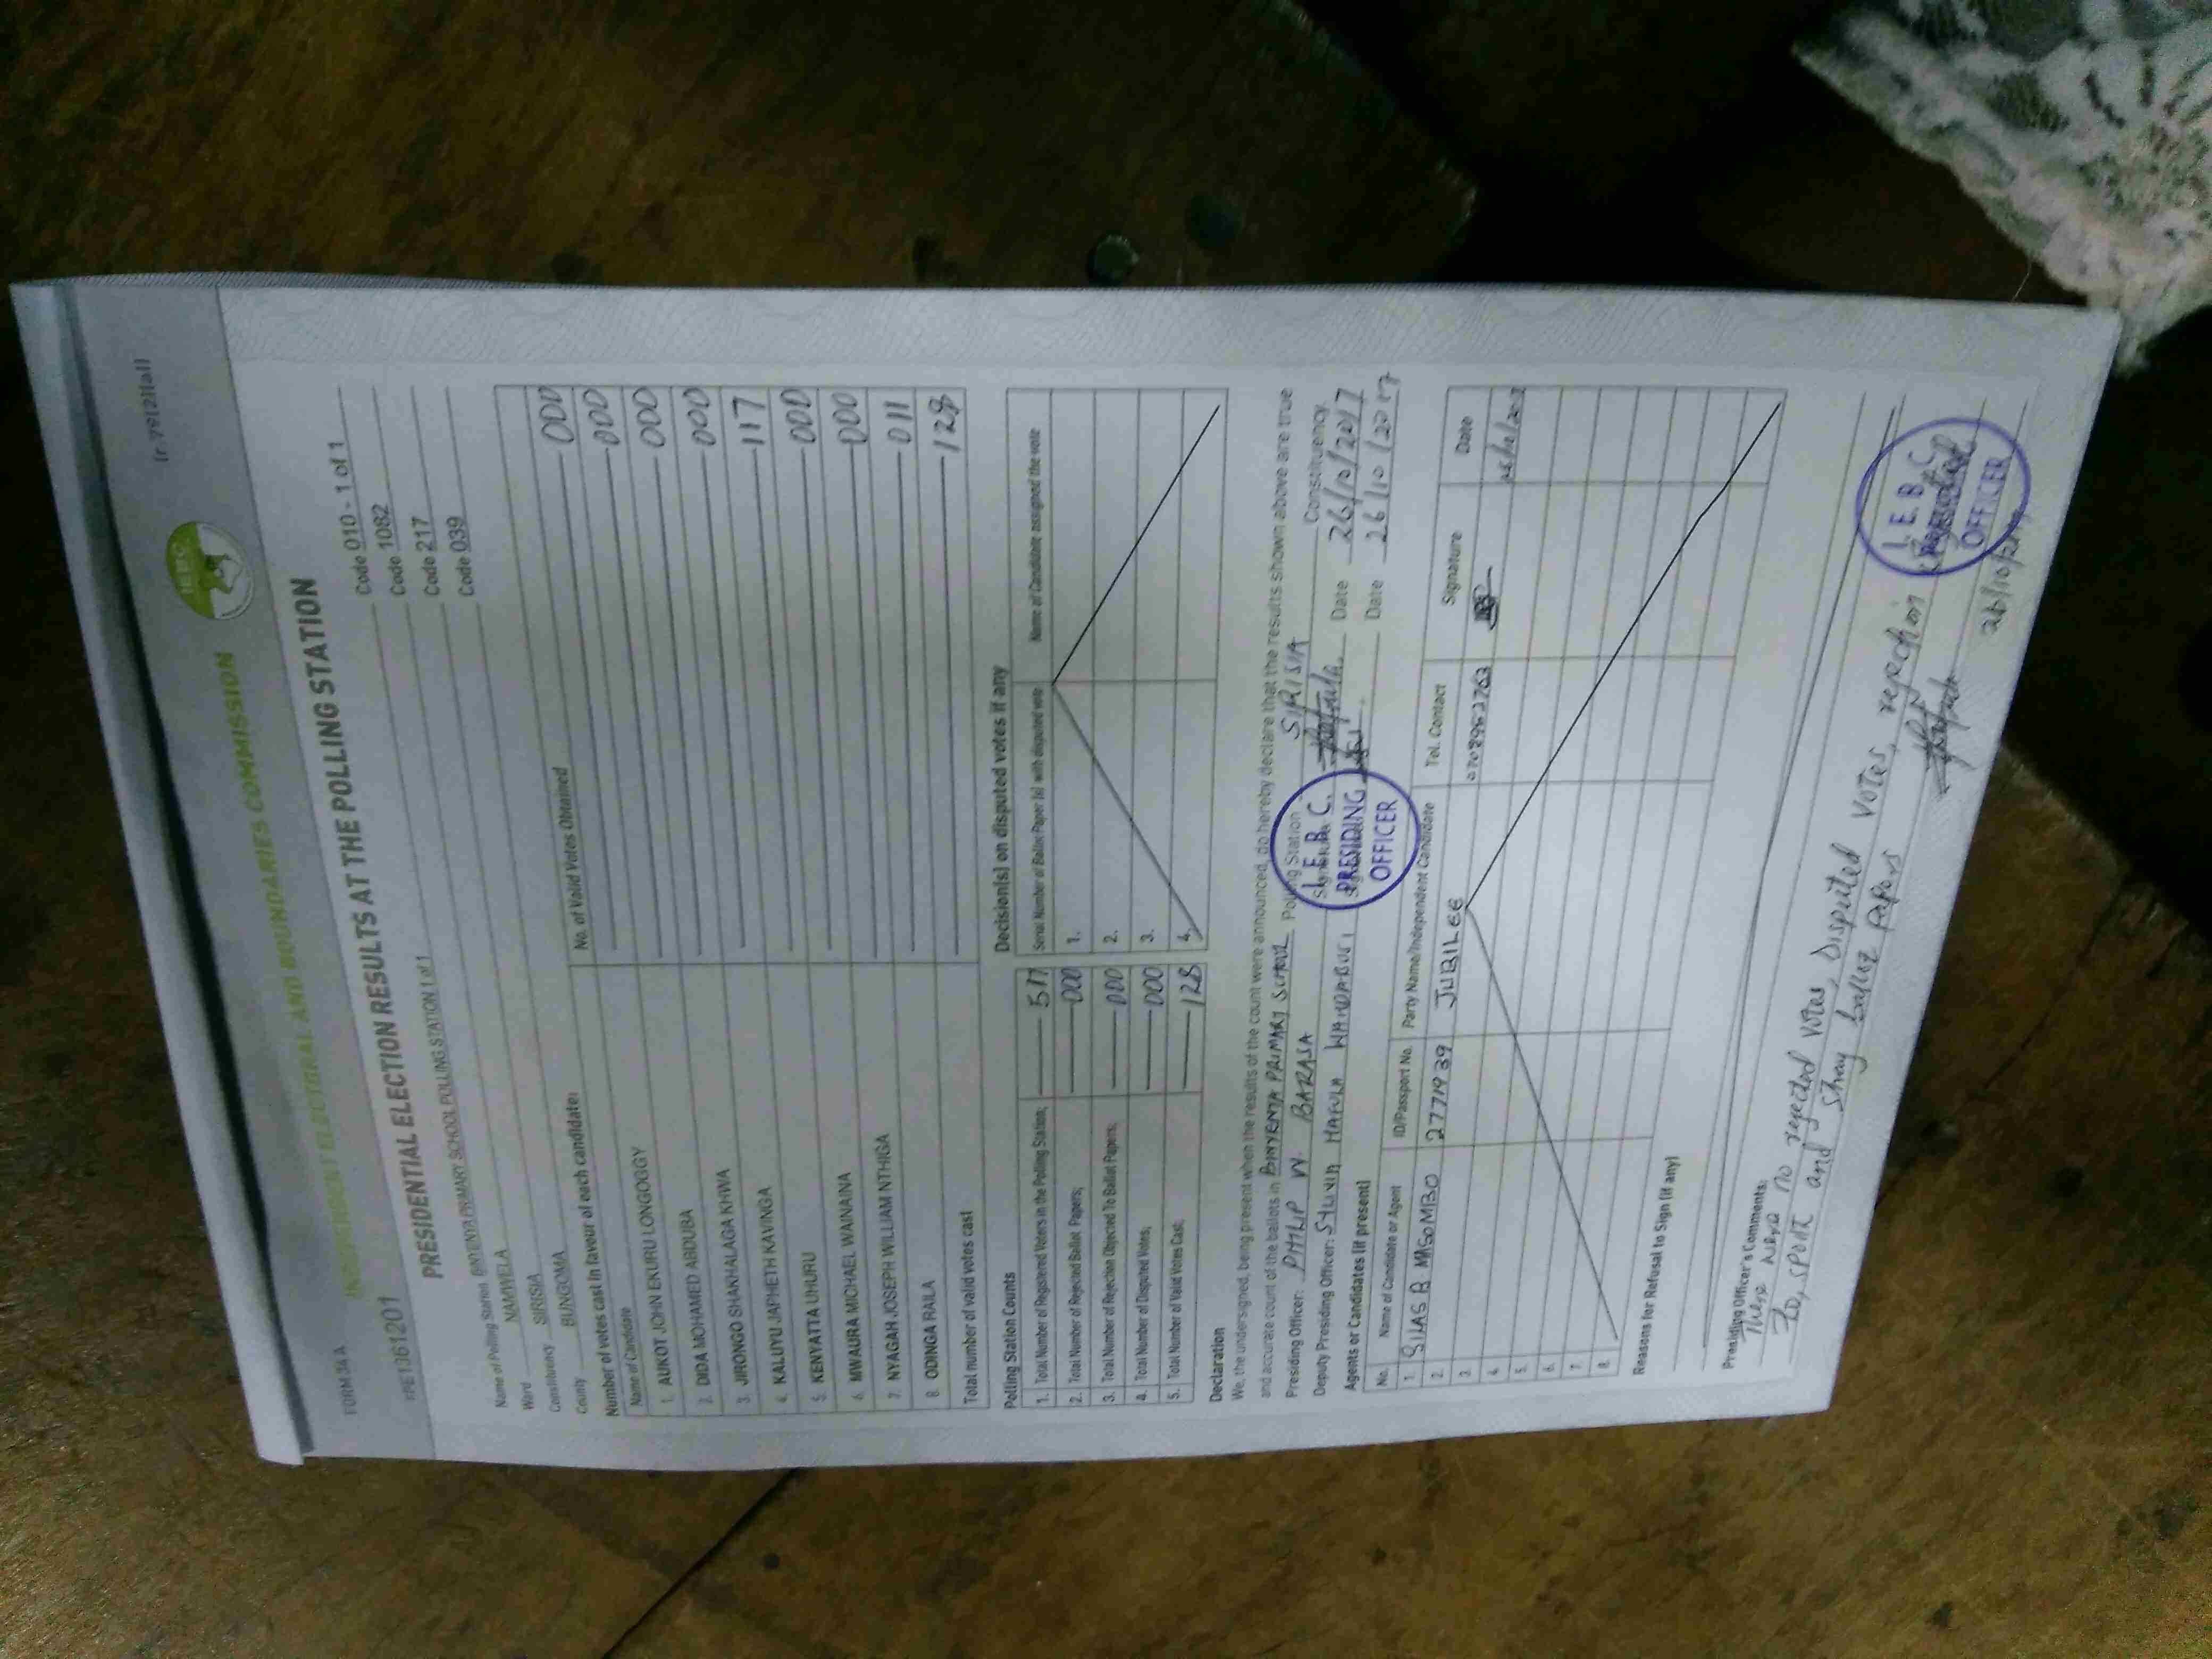 FORM 34 A
(r 79(2)(a))
IEBC
INDEPENDENT ELECTORAL AND BOUNDARIES COMMISSION
#PE1361201
PRESIDENTIAL ELECTION RESULTS AT THE POLLING STATION
Name of Polling Station BINYENYA PRIMARY SCHOOL POLLING STATION 1 of 1 Code 010 - 1 of 1
Ward NAMWELA Code 1082
Constituency SIRISIA Code 217
County BUNGOMA Code 039
Number of votes cast in favour of each candidate:
Name of Candidate No. of Valid Votes Obtained 000
1. AUKOT JOHN EKURU LONGOGGY 000
2. DIDA MOHAMED ABDUBA 000
3. JIRONGO SHAKHALAGA KHWA 000
4. KALUYU JAPHETH KAVINGA 117
5. KENYATTA UHURU 000
6. MWAURA MICHAEL WAINAINA 000
7. NYAGAH JOSEPH WILLIAM NTHIGA 011
8. ODINGA RAILA 128
Total number of valid votes cast
Polling Station Counts
1. Total Number of Registered Voters in the Polling Station; 517
2. Total Number of Rejected Ballot Papers; 000
3. Total Number of Rejection Objected To Ballot Papers; 000
4. Total Number of Disputed Votes; 000
5. Total Number of Valid Votes Cast; 128
Decision(s) on disputed votes if any
Serial Number of Ballot Paper (s) with disputed vote Name of Candidate assigned the vote
1.
2.
3.
4.
Declaration
We, the undersigned, being present when the results of the count were announced, do hereby declare that the results shown above are true
and accurate count of the ballots in BINYENYA PRIMARY SCHOOL Polling Station SIRISIA Constituency.
Presiding Officer: PHILIP W. BARASA Date 26/10/2017
Deputy Presiding Officer: SYLVIA NAFULA Date 26/10/2017
I.E.B.C.
PRESIDING
OFFICER
Agents or Candidates (if present)
No. Name of Candidate or Agent ID/Passport No. Party Name/Independent Candidate Tel. Contact Signature Date
1. SILAS B MASOMBO 2771939 JUBILEE 0708962762
2.
3.
4.
5.
6.
7.
8.
Reasons for Refusal to Sign (if any)
Presiding Officer's Comments:
There were no rejected votes, Disputed votes, rejection
TO, spoilt and stray ballot papers
26/10/2017
I.E.B.C
OFFICER